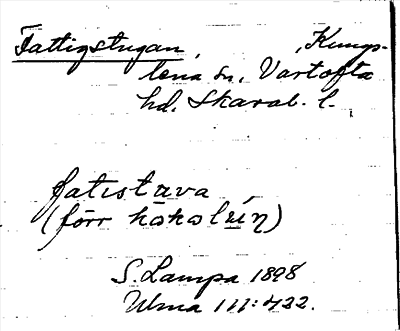 Fattigstugan, Kungs-
lena sn, Vartofta
hd. Skarab. l.
fatıstava
(förr håkoleíŋ)
S. Lampa 1898
Ulma 111:422.